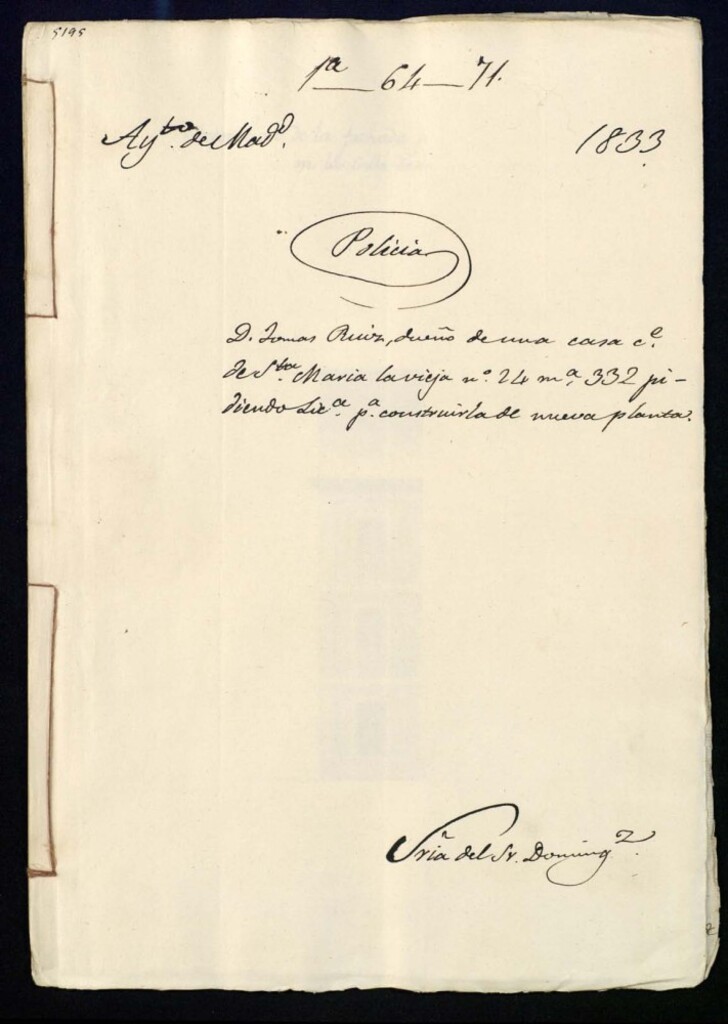 5195
1ª — 64 — 71.
Ayto. de Madd.
1833
Policia
D. Tomas Ruiz, dueño de una casa ce.
de Sta. Maria la vieja nº. 24 mª. 332 pi-
diendo Licª. pª. construirla de nueva planta.
Sria del Sr. Domingz.